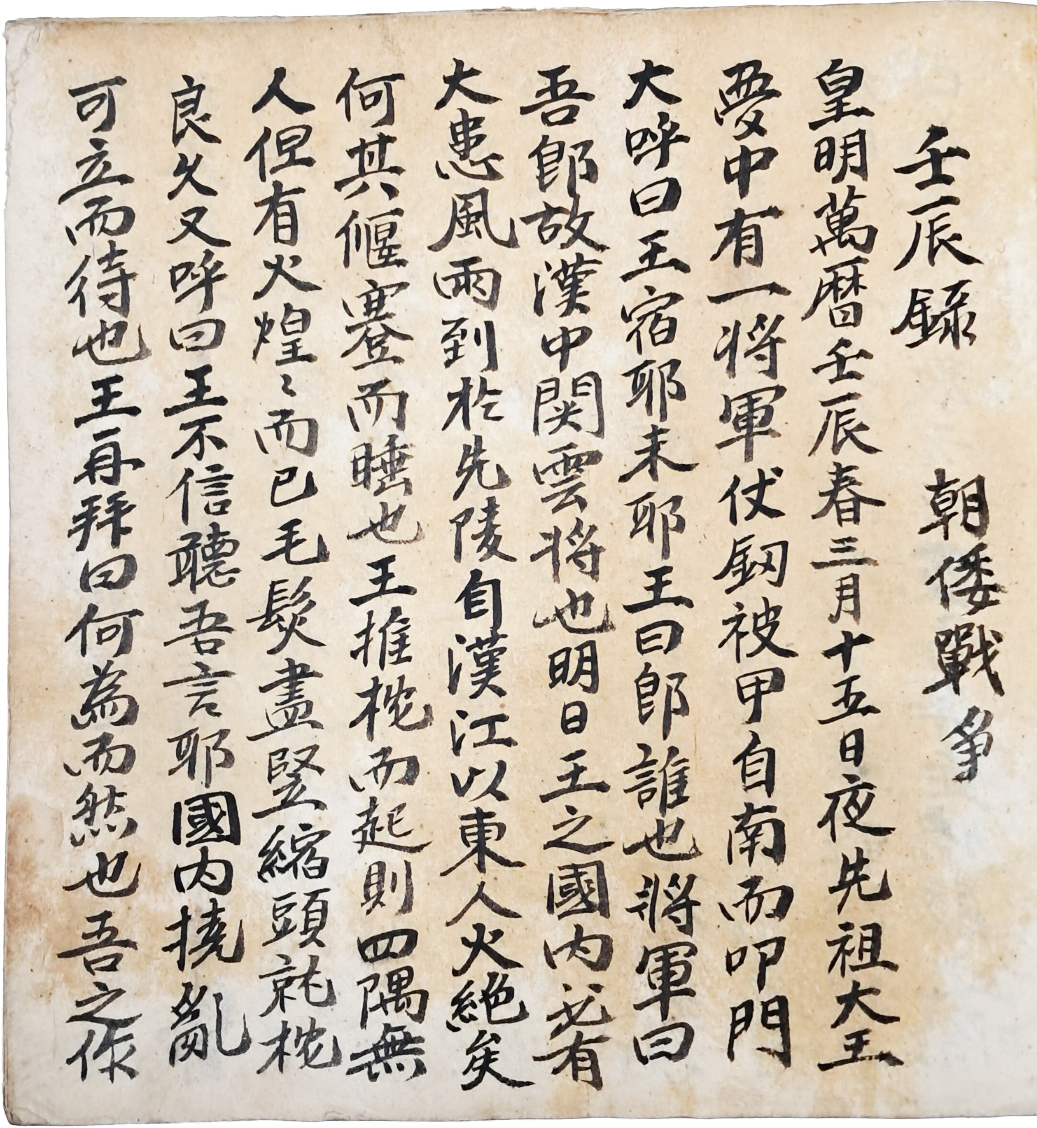 壬辰錄 朝倭戰爭
皇明萬曆壬辰春三月十五日夜先祖大王
夢中有一將軍仗釼被甲自南而叩門
大呼曰王宿耶未耶王曰郎誰也將軍曰
吾郎故漢中関雲將也明日王之國内必有
大患風雨到於先陵自漢江以東人火絶矣
何其偃蹇而睡也王推枕而起則四隅無
人但有火煌〻而已毛髮盡竪縮頭就枕
良久又呼曰王不信聽吾言耶國内撓亂
可立而待也王再拜曰何為而然也吾之作